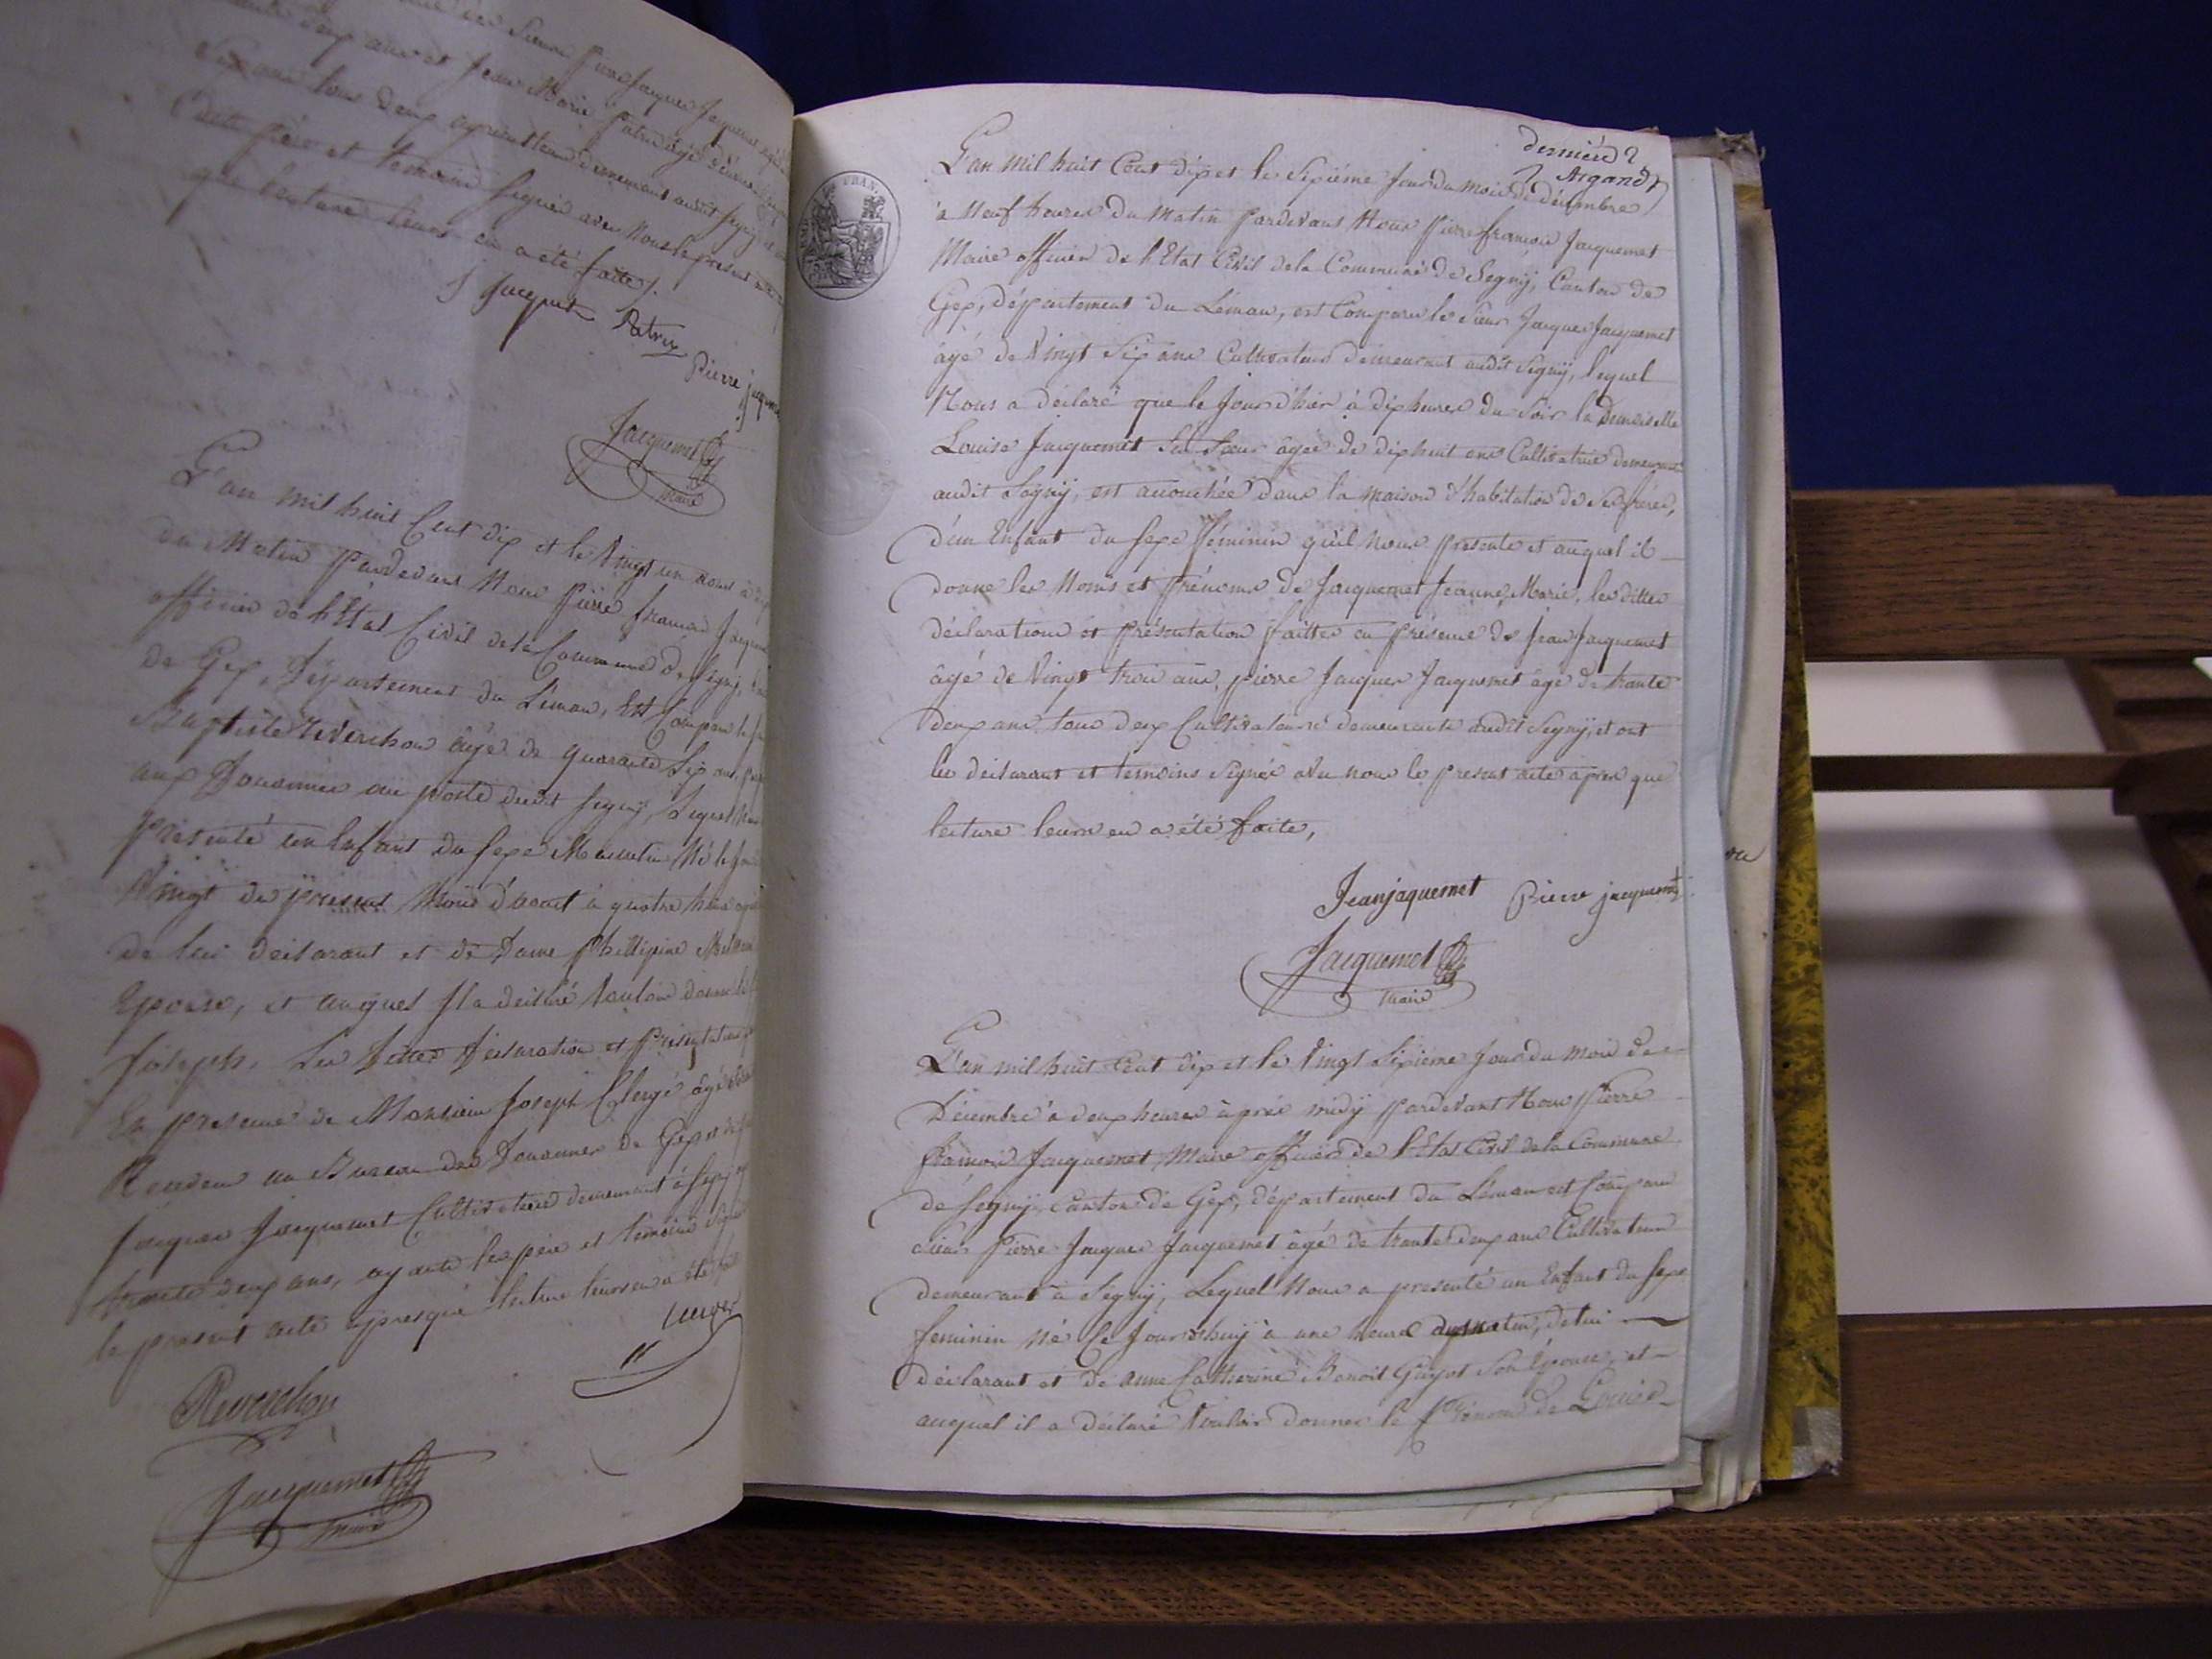 Sieur Pierre Jacques Jacquemet
deux ans et Jean Marie Patrix âgé de
Six ans tous deux demeurant audit Segny
père et temoins Signés avec Nous le present
que lecture leurs en a été faite /.
J Jacquet Patrix Pierre jaquemet
Jacquemet
maire
L'an mil huit Cent dix et le Vingt un aout à dix
du Matin pardevant Nous Pierre francois Jacquemet
officier de l'Etat Civil de la Commune de Segny,
de Gex, Département du Léman, Est Comparu le
Baptiste Reverchon âgé de quarante Six ans,
aux Douannes au poste dudit Segny, Lequel Nous
présenté un Enfant du Sexe Masculin Né le jour
Vingt du present Mois d'aout à quatre heures
de lui déclarant et de Dame Phillipine
Epouse, et auquel Il a déclaré Vouloir donner
Joseph. Les dittes déclaration et Présentation
En presence de Monsieur Joseph Clergé âgé
Receveur au Bureau des Douannes de Gex et de
Jacques Jacquemet Cultivateur demeurant à Segny
trente deux ans, ayants les père et témoins signé
le present acte apres que lecture leurs en a été
Reverchon
Jacquemet
maire
derniere
Argand
L'an mil huit Cent dix et le Sixième Jour du mois de décembre
à Neuf heures du Matin Pardevant Nous Pierre françois Jacquemet
Maire officier de l'Etat Civil de la Commune de Segny, Canton de
Gex, département du Léman, est Comparu le Sieur Jacques Jacquemet
âgé de Vingt Six ans Cultivateur demeurant audit Segny, lequel
Nous a déclaré que le Jour d'hier à dix heures du Soir la Demoiselle
Louise Jacquemet Sa Soeur âgée de dix huit ans Cultivatrice demeurant
audit Segny, est accouchée dans la maison d'habitation de Ses frères,
d'un Enfant du Sexe féminin qu'il Nous presente et auquel il
donne les Noms et prénoms de Jacquemet Jeanne Marie, les dittes
déclarations et présentation faittes en présence de Jean Jacquemet
âgé de Vingt trois ans, pierre Jacques Jacquemet âgé de trante
deux ans tous deux Cultivateurs demeurants audit Segny, et ont
les déclarant et temoins Signés avec nous le present acte apres que
lecture leurs en a été faite,
Jean jaquemet Pierre jaquemet
Jacquemet
maire
L'an mil huit Cent dix et le Vingt Sixième Jour du mois de
Décembre à deux heures après midy pardevant Nous Pierre
françois Jacquemet Maire officier de l'Etat Civil de la Commune
de Segny, Canton de Gex, département du Léman est Comparu
Sieur Pierre Jacques Jacquemet âgé de trante deux ans Cultivateur
demeurant à Segny, Lequel Nous a presenté un Enfant du Sexe
feminin Né Ce Jourdhuy à une heure du matin, de lui
déclarant et de anne Catherine Benoit Guyot Son Epouse, et
auquel il a déclaré Vouloir donner le Prénom de Louise